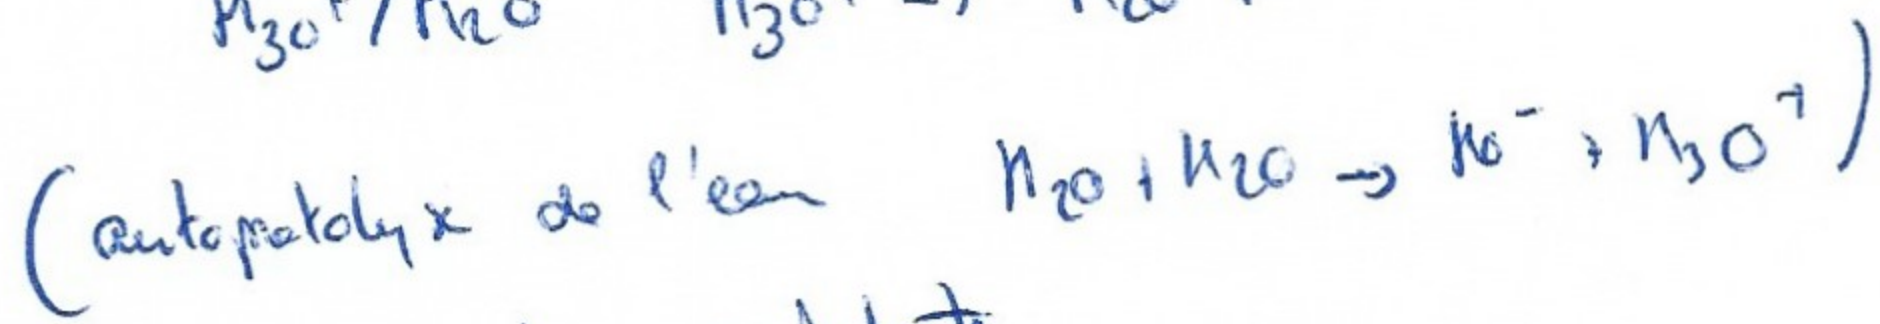 H3O+/H2O H3O+ → H2O
(autoprotolyse de l'eau H2O + H2O → HO- + H3O+)